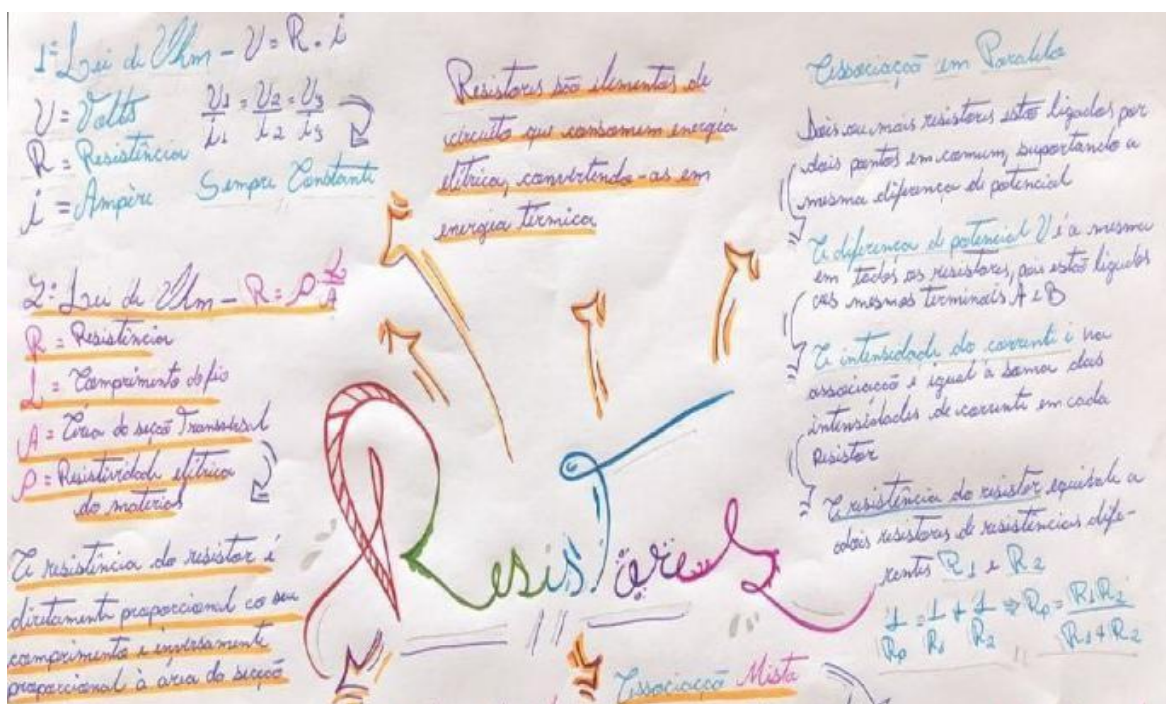 1ª Lei de Ohm - U = R . i
U = Volts
R = Resistência
i = Ampère
U1/i1 = U2/i2 = U3/i3
Sempre Constante
2ª Lei de Ohm - R = ρ L/A
R = Resistência
L = Comprimento do fio
A = Área do secção Transversal
ρ = Resistividade elétrica
do material
A resistência do resistor é
diretamente proporcional ao seu
comprimento e inversamente
proporcional à area da secção
Resistores são elementos de
circuito que consomem energia
elétrica, convertendo-as em
energia térmica
Resistores
Associação Mista
Associação em Paralelo
Dois ou mais resistores estão ligados por
dois pontos em comum, suportando a
mesma diferença de potencial
A diferença de potencial U é a mesma
em todos os resistores, pois estão ligados
aos mesmos terminais A e B
A intensidade do corrente i na
associação é igual à soma das
intensidades de corrente em cada
Resistor
A resistência do resistor equivale a
dois resistores de resistências dife-
rentes R1 e R2
1/Rp = 1/R1 + 1/R2 ⇒ Rp = R1R2/R1+R2